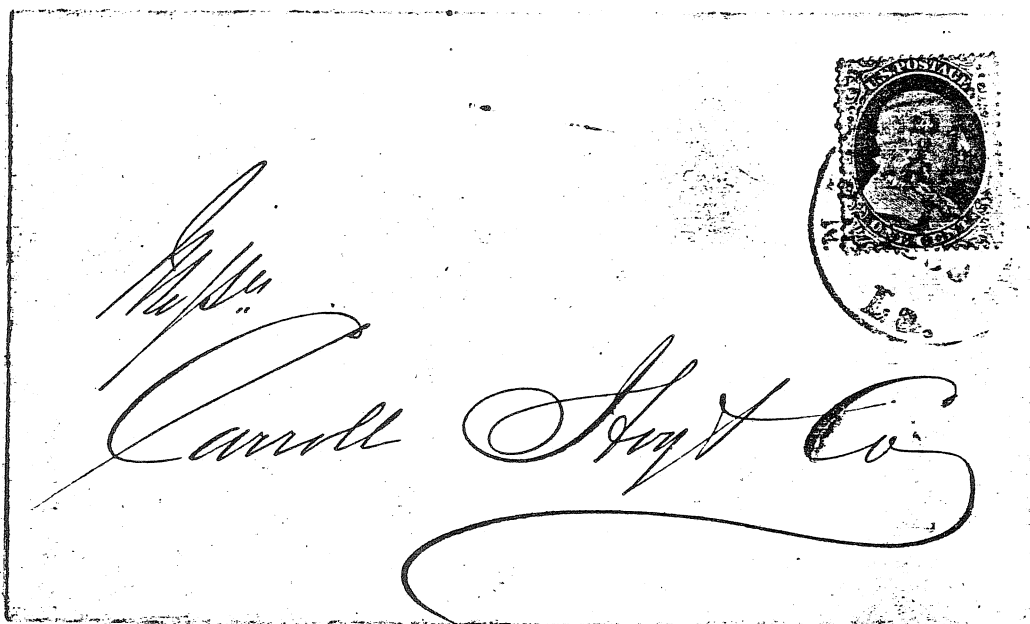 U.S. POSTAGE
La.
Messrs.
Carroll Hoyt Co